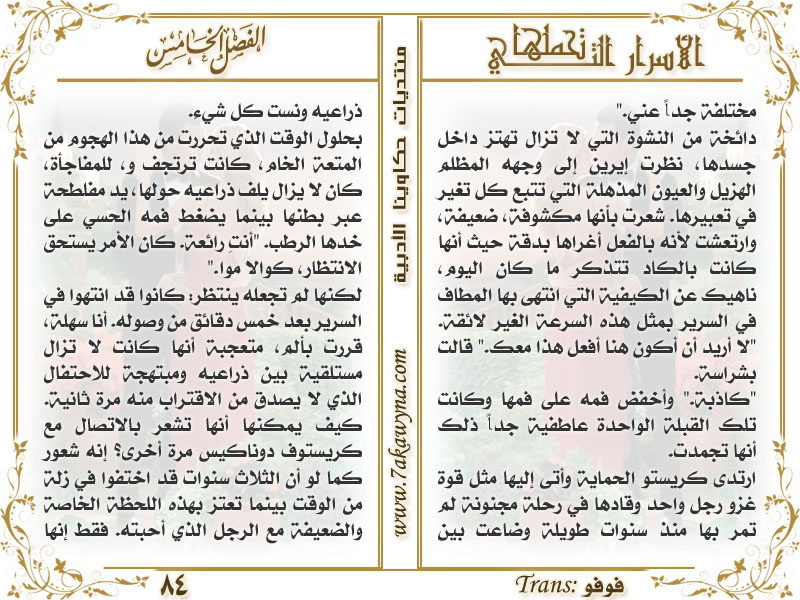 الأسرار التي تحملها
مختلفة جداً عني."
دائخة من النشوة التي لا تزال تهتز داخل
جسدها، نظرت إيرين إلى وجهه المظلم
الهزيل والعيون المذهلة التي تتبع كل تغير
في تعبيرها. شعرت بأنها مكشوفة، ضعيفة،
وارتعشت لأنه بالفعل أغراها بدقة حيث أنها
كانت بالكاد تتذكر ما كان اليوم،
ناهيك عن الكيفية التي انتهى بها المطاف
في السرير بمثل هذه السرعة الغير لائقة.
"لا أريد أن أكون هنا أفعل هذا معك." قالت
بشراسة.
"كاذبة." وأخفض فمه على فمها وكانت
تلك القبلة الواحدة عاطفية جداً ذلك
أنها تجمدت.
ارتدى كريستو الحماية وأتى إليها مثل قوة
غزو رجل واحد وقادها في رحلة مجنونة لم
تمر بها منذ سنوات طويلة وضاعت بين
Trans: فوفو
منتديات حكاوينا الأدبية
www.7akawyna.com
الفصل الخامس
ذراعيه ونست كل شيء.
بحلول الوقت الذي تحررت من هذا الهجوم من
المتعة الخام، كانت ترتجف و، للمفاجأة،
كان لا يزال يلف ذراعيه حولها، يد مفلطحة
عبر بطنها بينما يضغط فمه الحسي على
خدها الرطب. "أنت رائعة. كان الأمر يستحق
الانتظار، كوالا موا."
لكنها لم تجعله ينتظر: كانوا قد انتهوا في
السرير بعد خمس دقائق من وصوله. أنا سهلة،
قررت بألم، متعجبة أنها كانت لا تزال
مستلقية بين ذراعيه ومبتهجة للاحتفال
الذي لا يصدق من الاقتراب منه مرة ثانية.
كيف يمكنها أنها تشعر بالاتصال مع
كريستوف دوناكيس مرة أخرى؟ إنه شعور
كما لو أن الثلاث سنوات قد اختفوا في زلة
من الوقت بينما تعتز بهذه اللحظة الخاصة
والضعيفة مع الرجل الذي أحبته. فقط إنها
٨٤